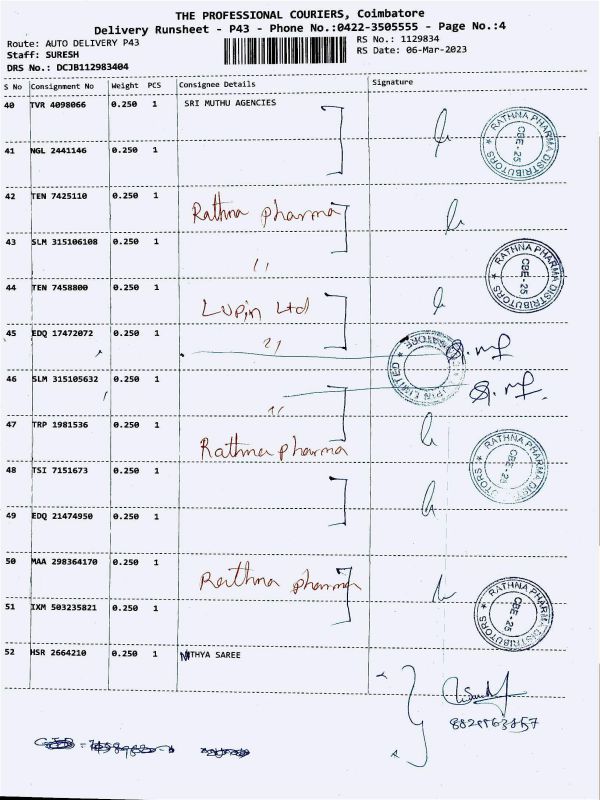 THE PROFESSIONAL COURIERS, Coimbatore
Delivery Runsheet - P43 - Phone No.:0422-3505555 - Page No.:4
Route: AUTO DELIVERY P43
RS No.: 1129834
Staff: SURESH
RS Date: 06-Mar-2023
DRS No.: DCJB112983404
S No Consignment No Weight PCS Consignee Details Signature
40 TVR 4098066 0.250 1 SRI MUTHU AGENCIES
RATHNA PHARMA DISTRIBUTORS CBE - 25
41 NGL 2441146 0.250 1
42 TEN 7425110 0.250 1 Rathna pharma
43 SLM 315106108 0.250 1 ''
RATHNA PHARMA DISTRIBUTORS CBE-25
44 TEN 7458800 0.250 1 Lupin Ltd
45 EDQ 17472072 0.250 1 ''
46 SLM 315105632 0.250 1 ''
47 TRP 1981536 0.250 1 Rathna pharma
RATHNA PHARMA DISTRIBUTORS CBE - 25
48 TSI 7151673 0.250 1
49 EDQ 21474950 0.250 1
50 MAA 298364170 0.250 1 Rathna pharma
51 IXM 503235821 0.250 1
RATHNA PHARMA DISTRIBUTORS CBE - 25
52 HSR 2664210 0.250 1 NITHYA SAREE